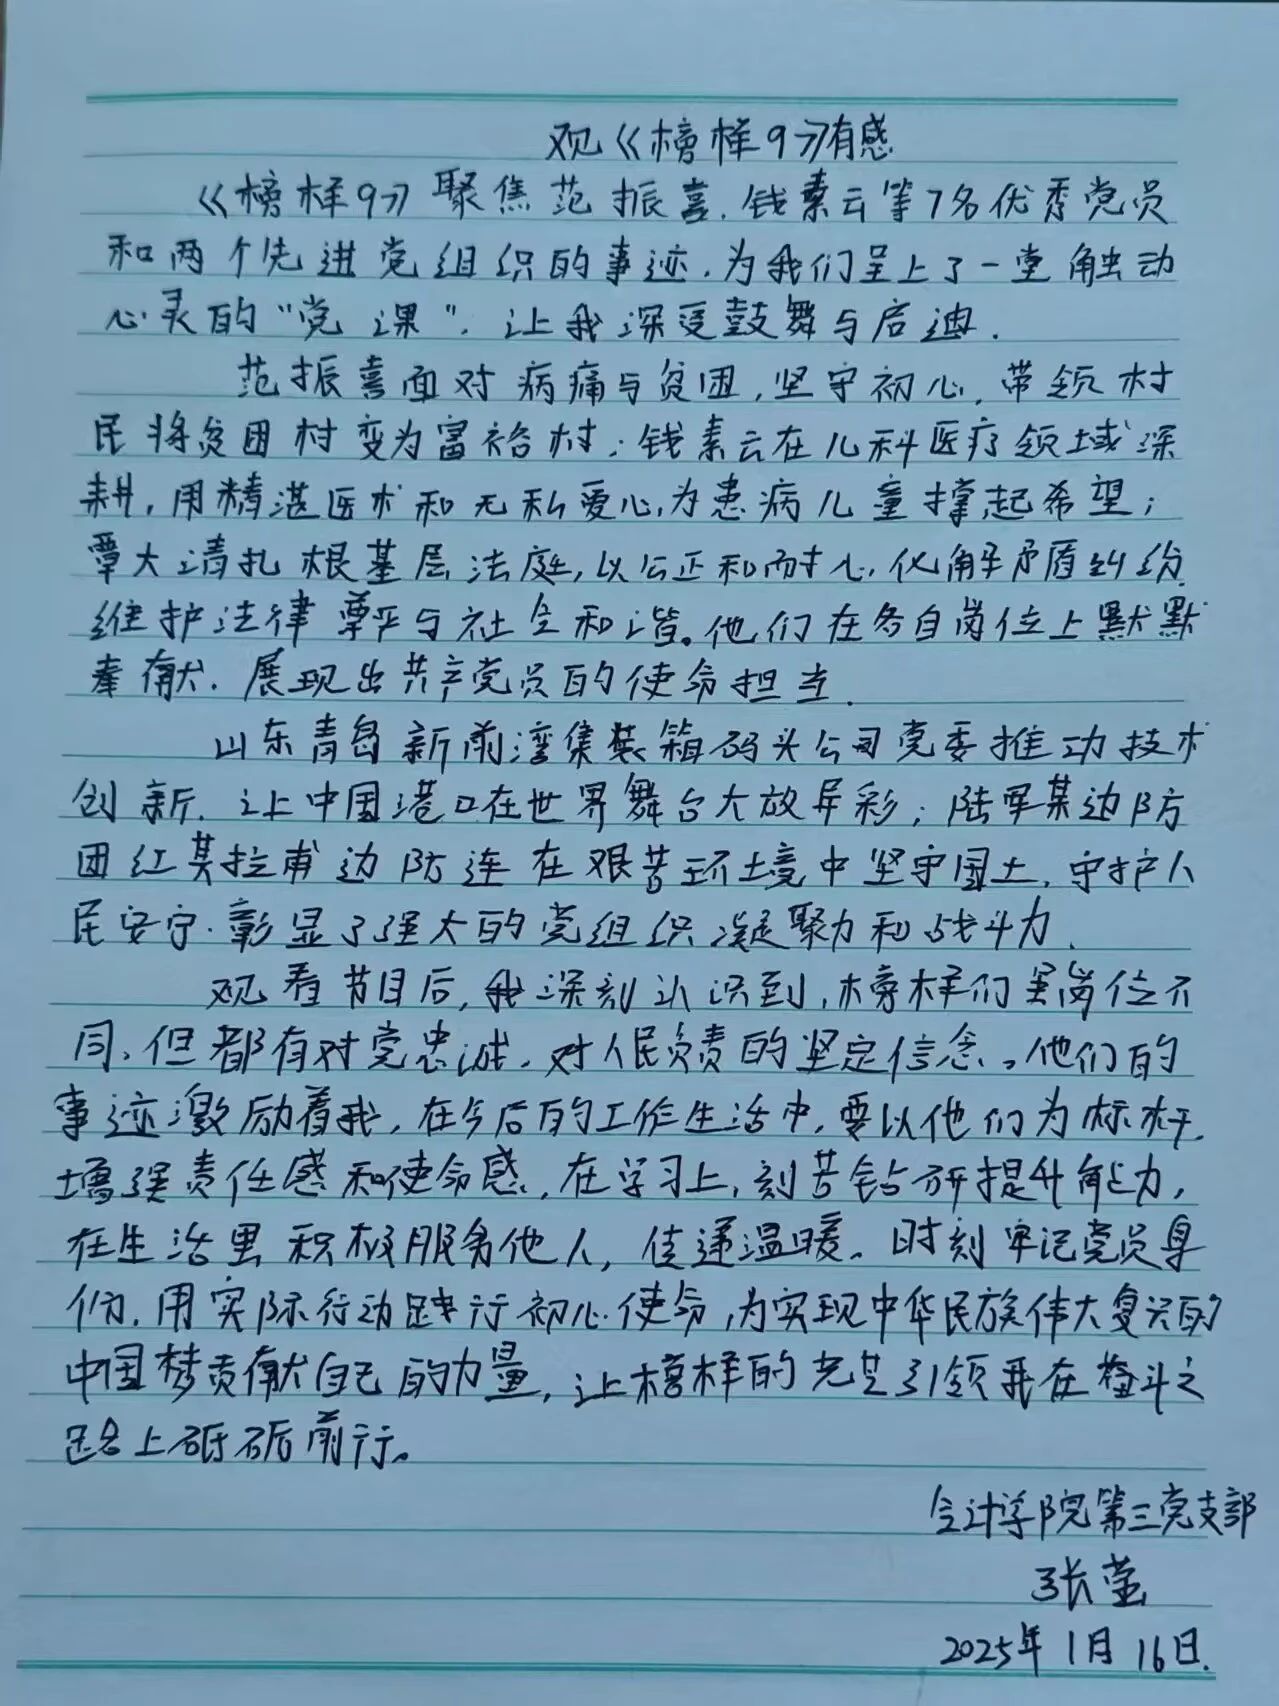 观《榜样9》有感
《榜样9》聚焦范振喜.钱素云等7名优秀党员
和两个先进党组织的事迹.为我们呈上了一堂触动
心灵的“党课”.让我深受鼓舞与启迪.
范振喜面对病痛与贫困,坚守初心,带领村
民将贫困村变为富裕村;钱素云在儿科医疗领域深
耕,用精湛医术和无私爱心,为患病儿童撑起希望;
覃大清扎根基层法庭,以公正和耐心,化解矛盾纠纷
维护法律尊严与社会和谐。他们在各自岗位上默默
奉献.展现出共产党员的使命担当.
山东青岛新前湾集装箱码头公司党委推动技术
创新.让中国港口在世界舞台大放异彩;陆军某边防
团红其拉甫边防连在艰苦环境中坚守国土,守护人
民安宁.彰显了强大的党组织凝聚力和战斗力.
观看节目后,我深刻认识到,榜样们虽岗位不
同,但都有对党忠诚.对人民负责的坚定信念。他们的
事迹激励着我,在今后的工作生活中,要以他们为标杆,
增强责任感和使命感.在学习上,刻苦钻研提升能力,
在生活里积极服务他人,传递温暖。时刻牢记党员身
份.用实际行动践行初心使命,为实现中华民族伟大复兴的
中国梦贡献自己的力量,让榜样的光芒引领我在奋斗之
路上砥砺前行。
会计学院第三党支部
张莹
2025年1月16日.